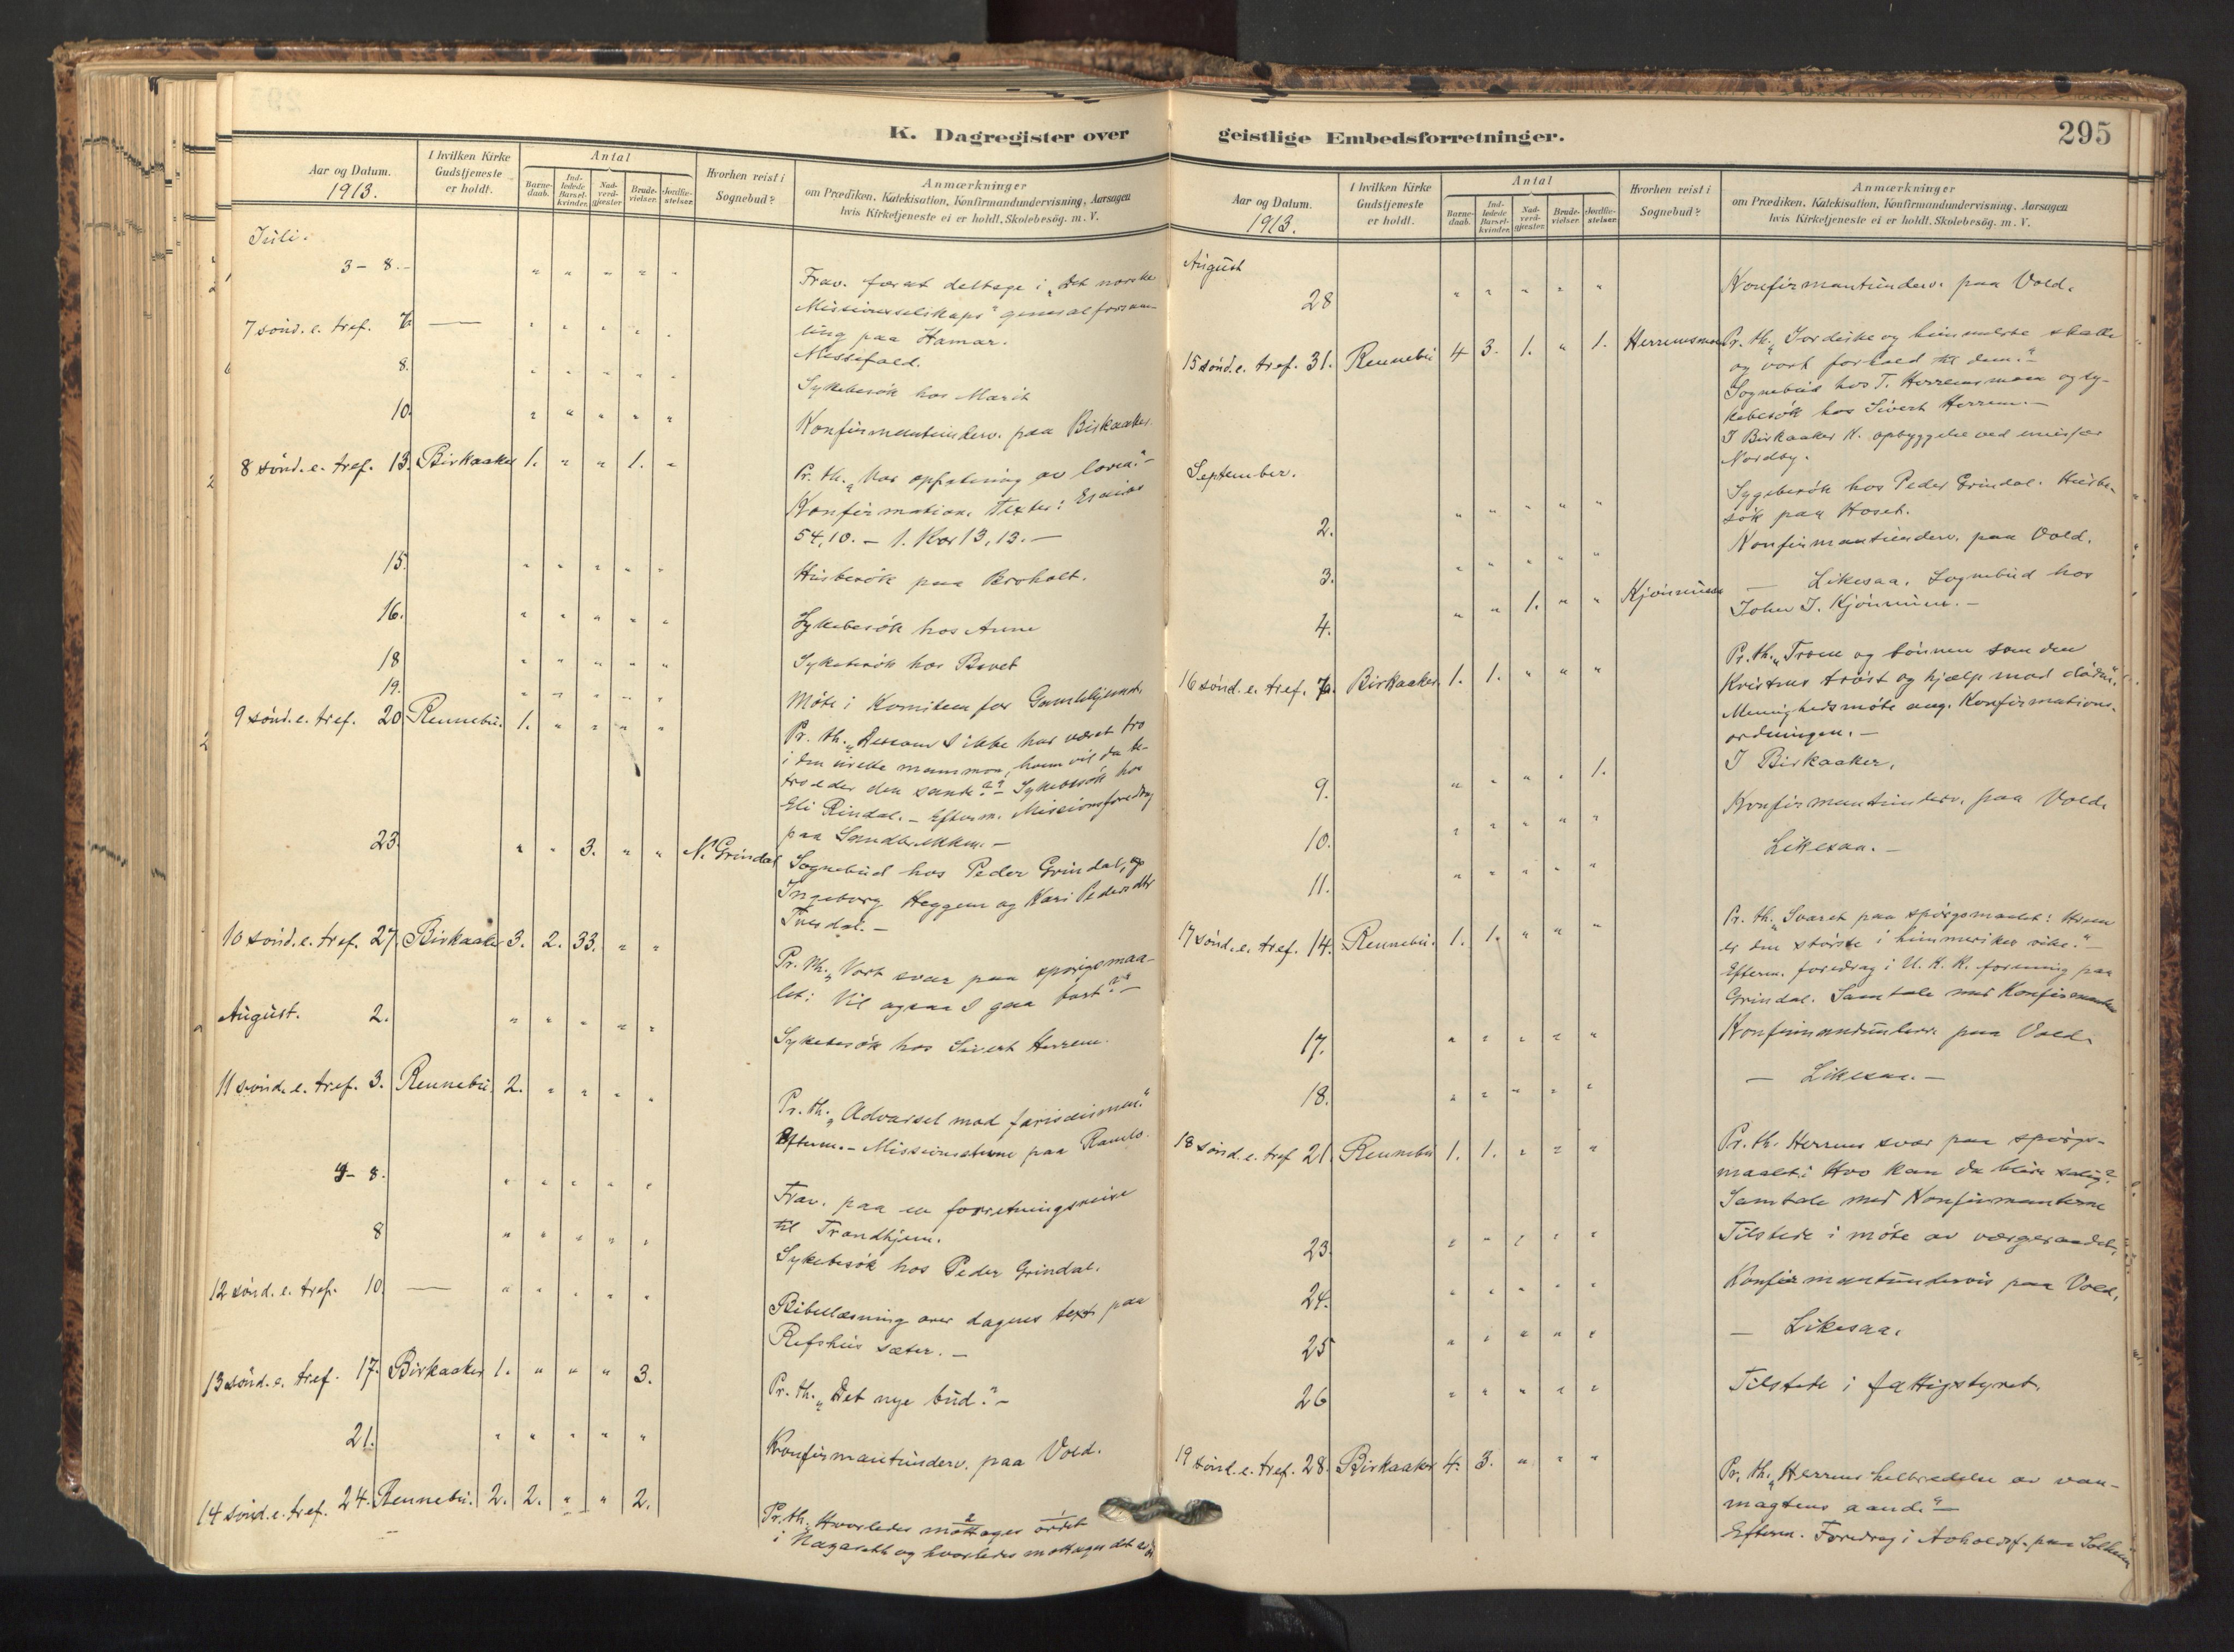 K. Dagregister over
Aar og Datum.
1913.
I hvilken Kirke
Gudstjeneste
er holdt.
Antal
Barne-
daab.
Ind-
ledede
Barsel-
kvinder.
Nad-
verd-
gjæster.
Brude-
vielser.
Jordfæ-
stelser.
Hvorhen reist i
Sognebud?
Anmærkninger
om Prædiken, Katekisation, Konfirmandundervisning, Aarsagen
hvis Kirketjeneste ei er holdt, Skolebesög. m. V.
Juli.
3-8. " " " " " Frav. for at deltage i „Det norske
Missionsselskaps" generalforsam-
ling paa Hamar.
7 sönd. e. tref. — " " " " " Messefald.
8. " " " " " Sykebesök hos Marit
10. " " " " " Konfirmantunderv. paa Birkaaker.
8 sönd. e. tref. 13. Birkaaker 1. " " 1. " Pr. th. „Vor opfatning av loven." -
Konfirmation. Texter: Esaias
54,10. - 1. Kor 13, 13. -
15. " " " " " Husbesök paa Broholt.
16. " " " " " Sykebesök hos Anne
18 " " " " " Sykebesök hos Beret
19. " " " " " Möte i Komiteen for Gamlehjemmet.
9 sönd. e. tref. 20. Rennebu. 1. " " " " Pr. th. „Dersom I ikke har været tro
i den urette mammon, hvem vil da be-
tro eder den sande?" - Sykebesök hos
Eli Rindal. - Efterm. Missionsforedrag
paa Sandbrekken. -
23. " " 3. " " N. Grindal Sognebud hos Peder Grindal, og
Ingeborg Heggem og Kari Pedersdtr
10 sönd. e. tref. 27. Birkaaker 3. 2. 33. " " Pr. th. „Vort svar paa spörgsmaa-
let: Vil ogsaa I gaa bort?" -
August. 2. " " " " " Sykebesök hos Sivert Herrem.
11 sönd. e. tref. 3. Rennebu. 2. " " " " Pr. th. „Advarsel mod farisæismen."
Efterm. - Missionsstevne paa Ramlo.
4-8. " " " " " Frav. paa en forretningsreise
til Trondhjem.
8 " " " " " Sykebesök hos Peder Grindal.
12 sönd. e. tref. 10. — " " " " " Bibellæsning over dagens text paa
Refshus sæter. -
13 sönd. e. tref. 17. Birkaaker 1. " " " 3. Pr. th. „Det nye bud." -
21. " " " " " Konfirmantunderv. paa Vold.
14 sönd. e. tref. 24. Rennebu. 2. 2. " " 2. Pr. th. „Hvorledes mottages ordet
i Nazaret og hvorledes mottages det
geistlige Embedsforretninger.
295
Aar og Datum.
1913.
I hvilken Kirke
Gudstjeneste
er holdt.
Antal
Barne-
daab.
Ind-
ledede
Barsel-
kvinder.
Nad-
verd-
gjæster.
Brude-
vielser.
Jordfæ-
stelser.
Hvorhen reist i
Sognebud?
Anmærkninger
om Prædiken, Katekisation, Konfirmandundervisning, Aarsagen
hvis Kirketjeneste ei er holdt. Skolebesög. m. V.
August
28 " " " " " Konfirmantunderv. paa Vold.
15 sönd. e. tref. 31. Rennebu 4 3. 1. " 1. Herremsmoen Pr. th. „Jordiske og himmelske skatte
og vort forhold til dem." -
Sognebud hos T. Herremsmoen og sy-
kebesök hos Sivert Herrem. -
I Birkaaker K. opbyggelse ved emissær
Nordby.
September.
2. " " " " " Sygebesök hos Peder Grindal. Husbe-
sök paa Hoset.
3. " " " " " Konfirmantunderv. paa Vold.
4. " " 1. " " — Likesaa. Sognebud hos
John J. Kjönnum. -
16 sönd. e. tref. 7. Birkaaker. 1. 1. " " " Pr. th. „Troen og bönnen som den
Kristnes tröst og hjælp mod döden."
Menighedsmöte ang. Konfirmations-
ordningen. -
9. " " " " 1. I Birkaaker.
10. " " " " " Konfirmantunderv. paa Vold.
11. " " " " " Likesaa. -
17 sönd. e. tref. 14. Rennebu. 1. 1. " " " Pr. th. „Svaret paa spörgsmaalet: Hvem
er den störste i himmeriket rike." -
Efterm. foredrag i U. K. K. forening paa
Grindal. Samtale med Konfirmanterne
17. " " " " " Konfirmandunderv. paa Vold.
18. " " " " " — Likesaa. -
18 sönd. e. tref 21. Rennebu 1. 1. " " " Pr. th. Herrens svar paa spörgs-
maalet: Hvo kan da blive salig?
Samtale med Konfirmanterne
23. " " " " " Tilstede i möte av vergeraadet.
24. " " " " " Konfirmantundervis paa Vold.
25 " " " " " — Likesaa.
26 " " " " " Tilstede i fattigstyret.
19 sönd. e. tref. 28. Birkaaker 4. 3. " " " Pr. th. „Herrens helbredelse av van-
magtens aand." -
Efterm. Foredrag i Avholdsf. paa Solheim